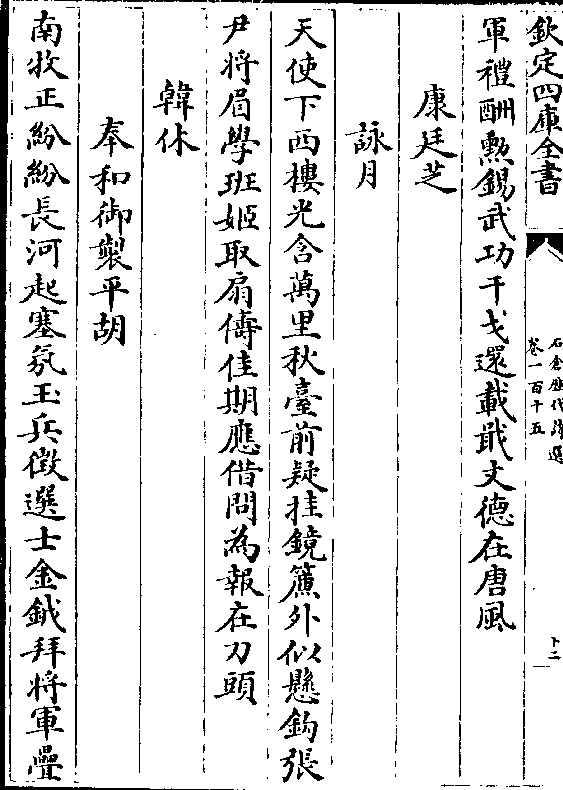 欽定四庫全書
石倉歷代詩選
卷一百十五
十二
軍禮酬勲錫武功干戈還載戢文德在唐風
康廷芝
詠月
天使下西樓光含萬里秋臺前疑挂鏡簾外似懸鈎張
尹將眉學班姬取扇儔佳期應借問為報在刀頭
韓休
奉和御製平胡
南牧正紛紛長河起塞氛玉兵徵選士金鉞拜將軍疊